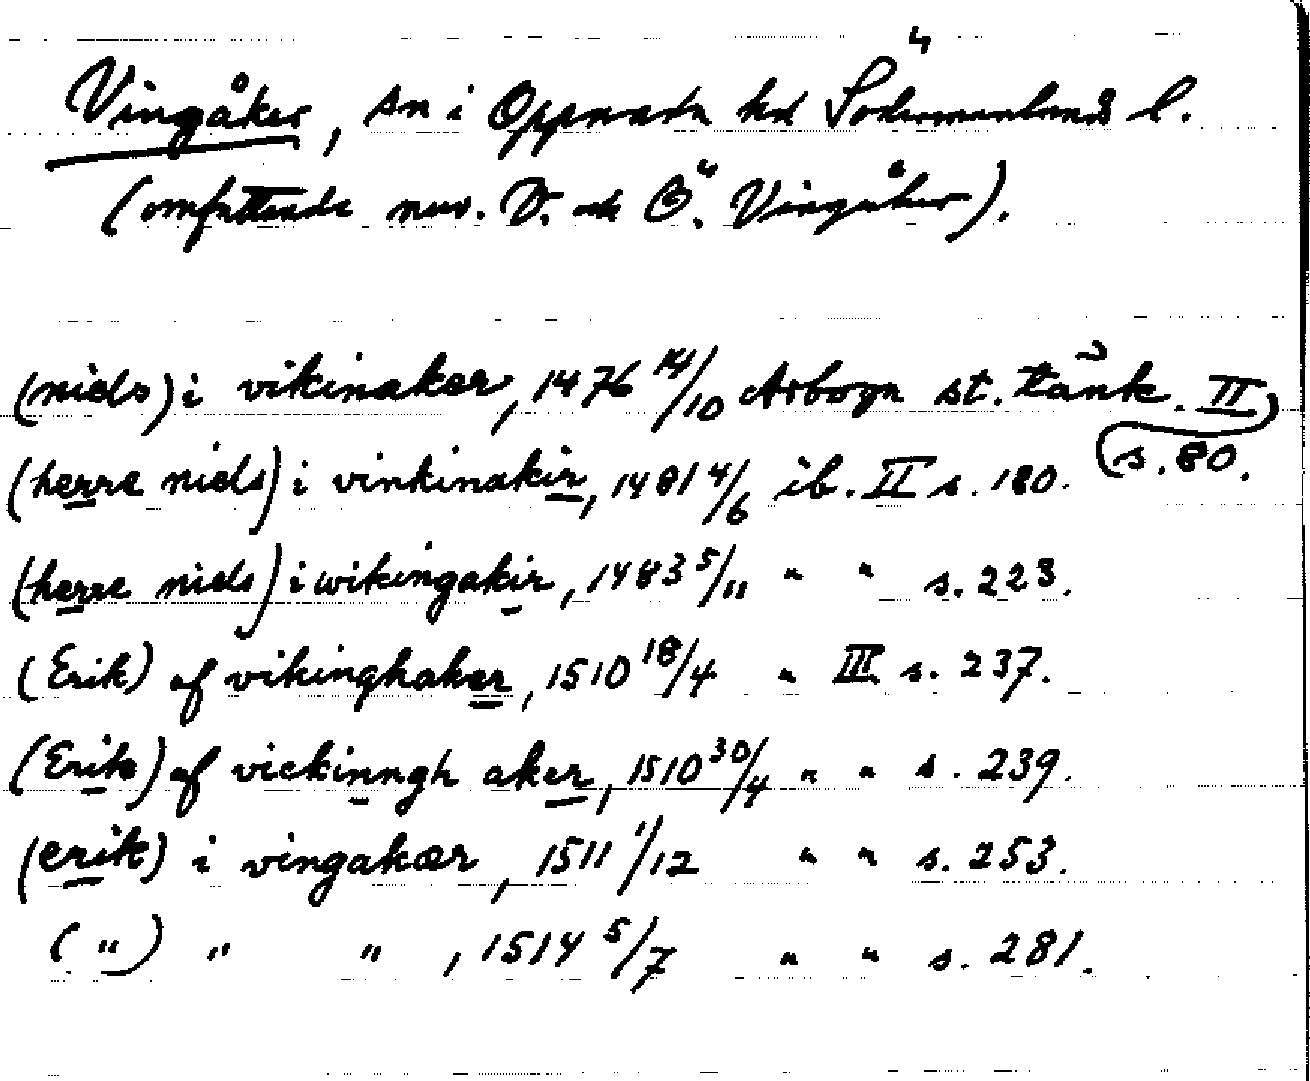 Vingåker, sn i Oppunda hd Södermanlands l.
(omfattande nuv. V. och Ö. Vingåker).
(niels) i vikinaker, 1476 14/10 Arboga st. tänk. II
s. 80.
(herre niels) i vinkinakir, 1481 4/6 ib. II s. 180.
(herre niels) i wikingakir, 1483 5/11 " " s. 223.
(Erik) af vikinghaker, 1510 18/4 " III s. 237.
(Erik) af vickinngh aker, 1510 30/4 " " s. 239.
(erik) i vingakær, 1511 1/12 " " s. 253.
(") " " , 1514 5/7 " " s. 281.